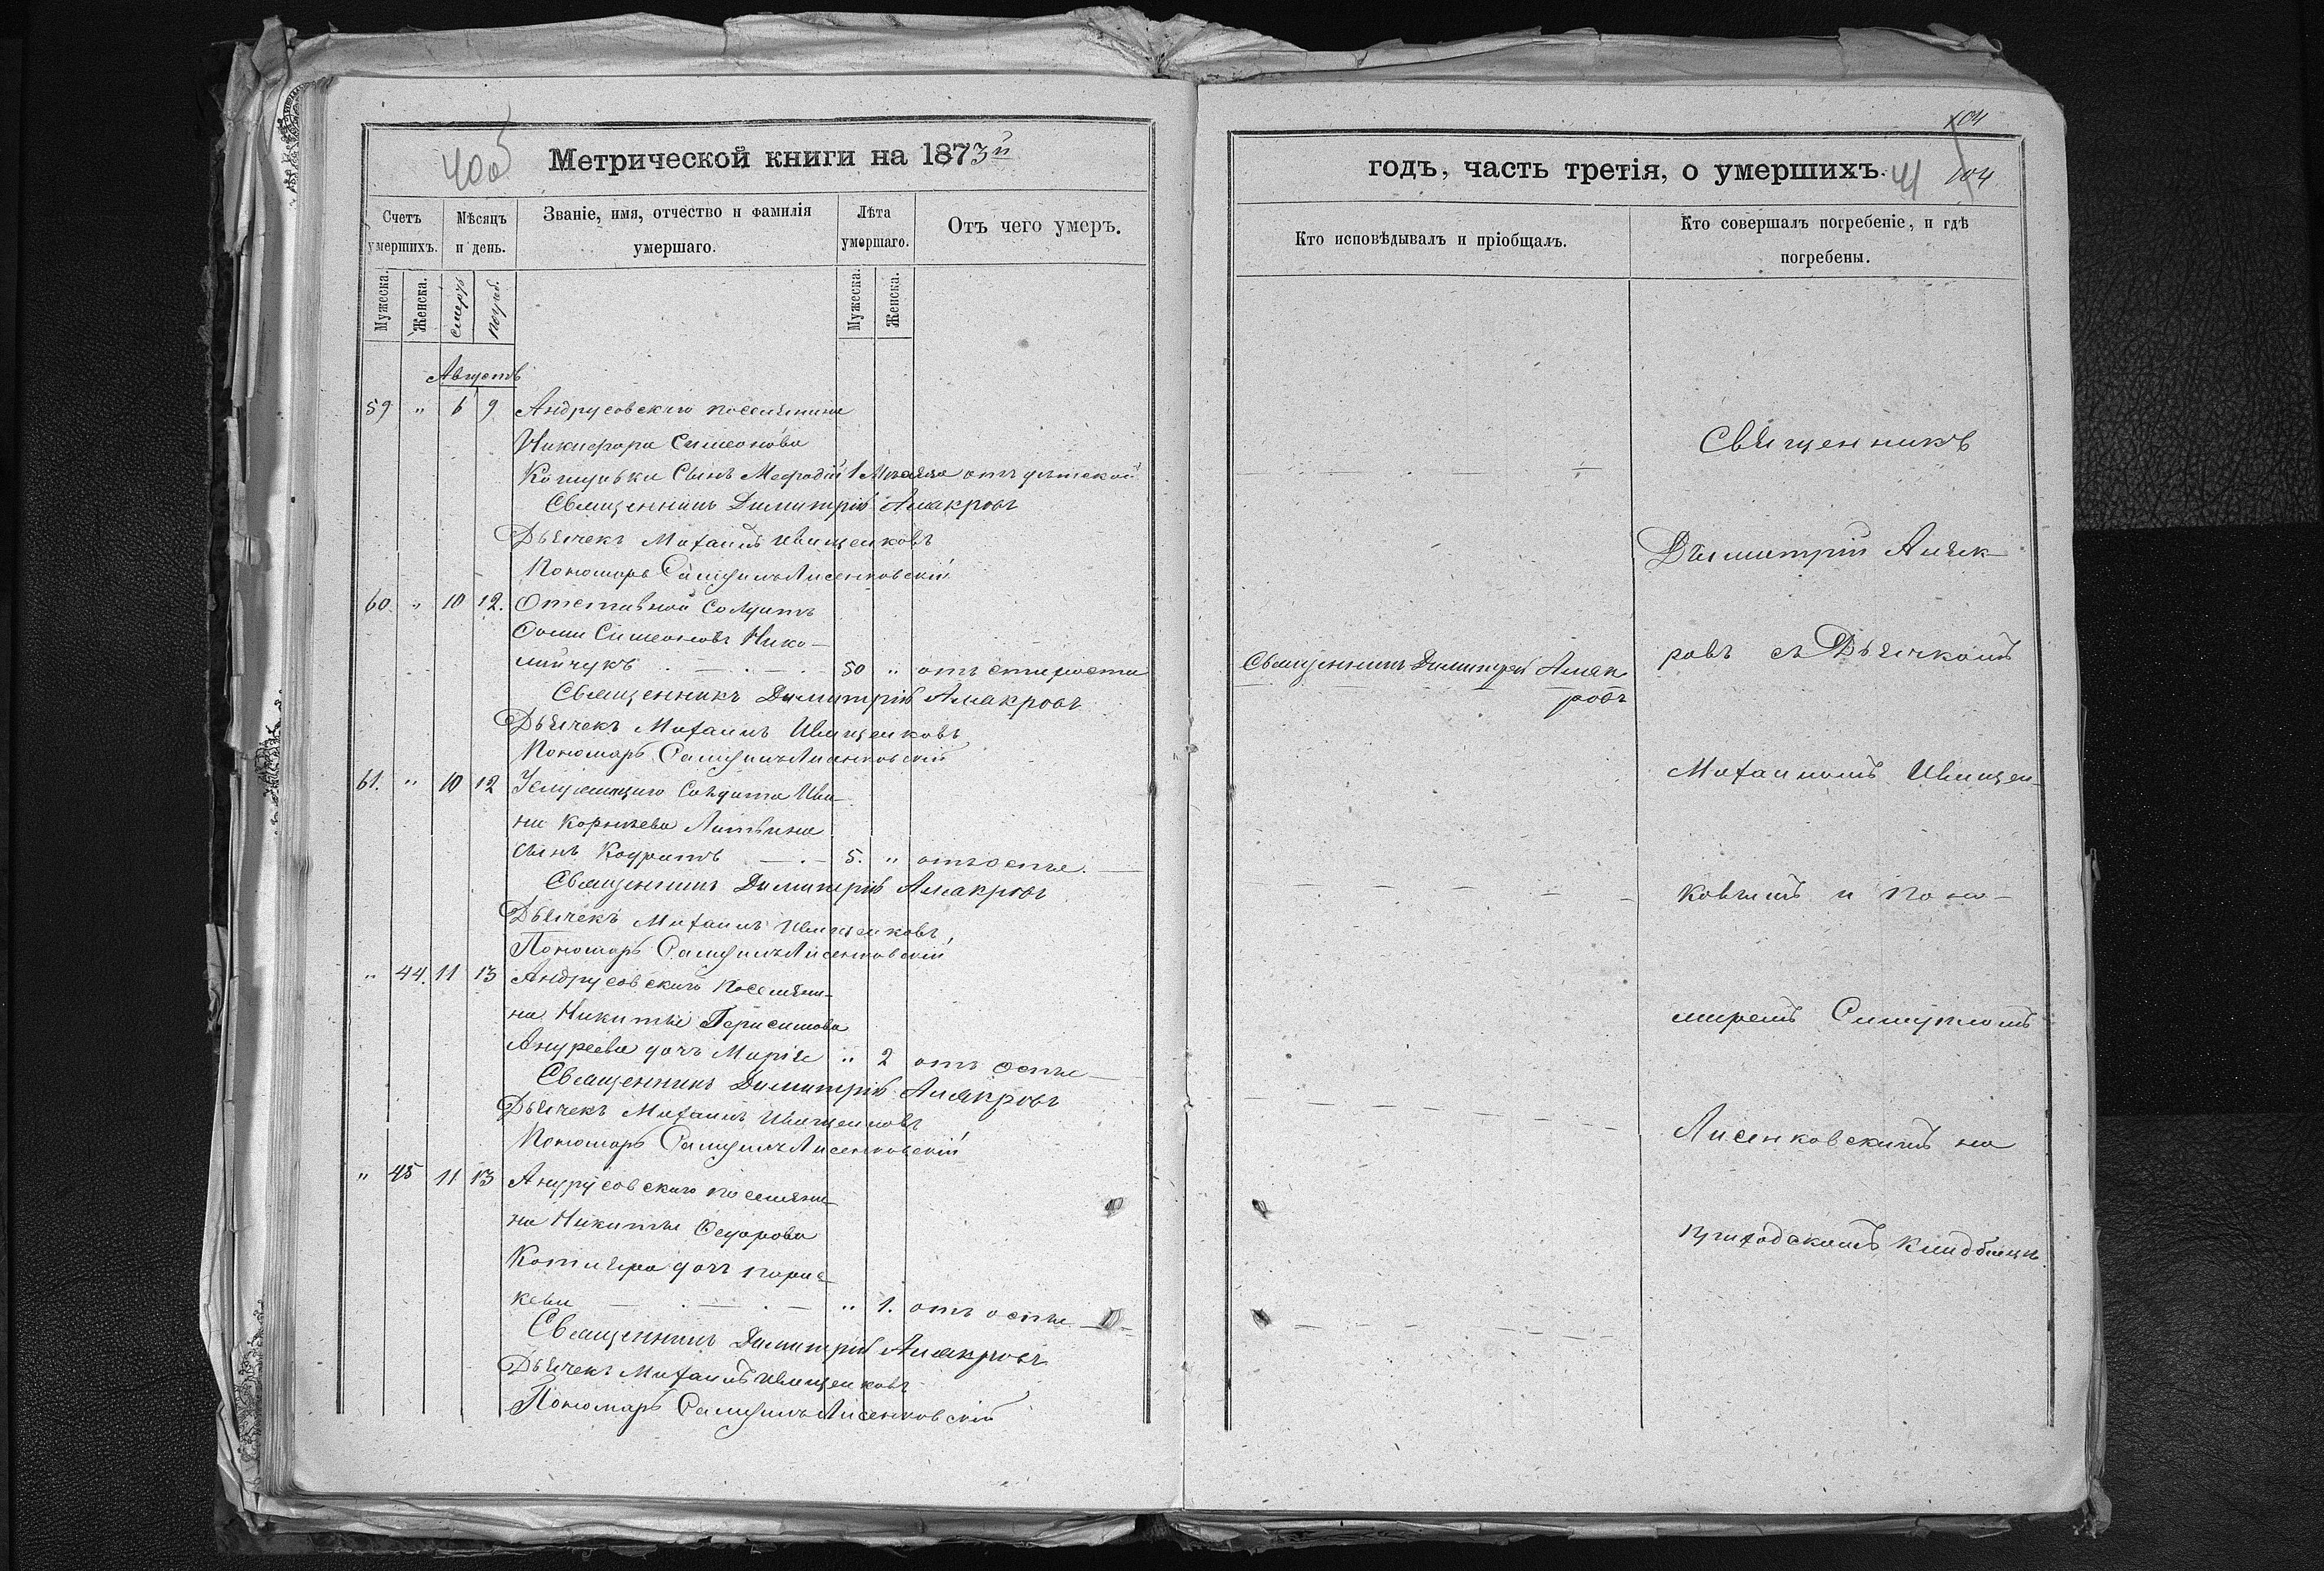 40об
Метрической книги на 1873й
Счетъ умершихъ.
Мѣсяцъ и день.
Званіе, имя, отчество и фамилія умершаго.
Лѣта умершаго.
Отъ чего умеръ.
Мужеска.
Женска.
смерть
погреб.
Мужеска.
Женска.
Августъ
59 " 6 9 Андрусовскаго поселянина
Никифора Симеонова
сынъ Мефодій 1 Мѣсяца отъ дѣтской
Священникъ Димитрій
Дьячекъ Михаилъ Иващенковъ
Пономарь Самуилъ Лисенковскій
60. " 10 12. Отставной Солдатъ
Фома Симеоновъ Нико-
лайчукъ 50 " отъ старости
Священникъ Димитрій
Дьячекъ Михаилъ Иващенковъ
Пономарь Самуилъ Лисенковскій
61. " 10 12 Солдата Ива-
на Корнѣева Литвина
сынъ Кодратъ 5. " отъ оспы.
Священникъ Димитрій
Дьячекъ Михаилъ Иващенковъ
Пономарь Самуилъ Лисенковскій
" 44. 11 13 Андрусовскаго поселяни-
на Никиты Герасимова
Андреева дочь Марія " 2 отъ оспы
Священникъ Димитрій
Дьячекъ Михаилъ Иващенковъ
Пономарь Самуилъ Лисенковскій
" 45 11 13 Андрусовскаго поселяни-
на Никиты Федорова
Котляра дочь Парас-
кева " 1. отъ оспы
Священникъ Димитрій
Дьячекъ Михаилъ Иващенковъ
Пономарь Самуилъ Лисенковскій
104
годъ, часть третія, о умершихъ. 41 104
Кто исповѣдывалъ и пріобщалъ.
Кто совершалъ погребеніе, и гдѣ погребены.
Священникъ Димитрій
ровъ
Священникъ
Димитрій
ровъ съ Дьячкомъ
Михаиломъ Иващен-
ковымъ и Поно-
маремъ Самуиломъ
Лисенковскимъ на
приходскомъ кладбищѣ